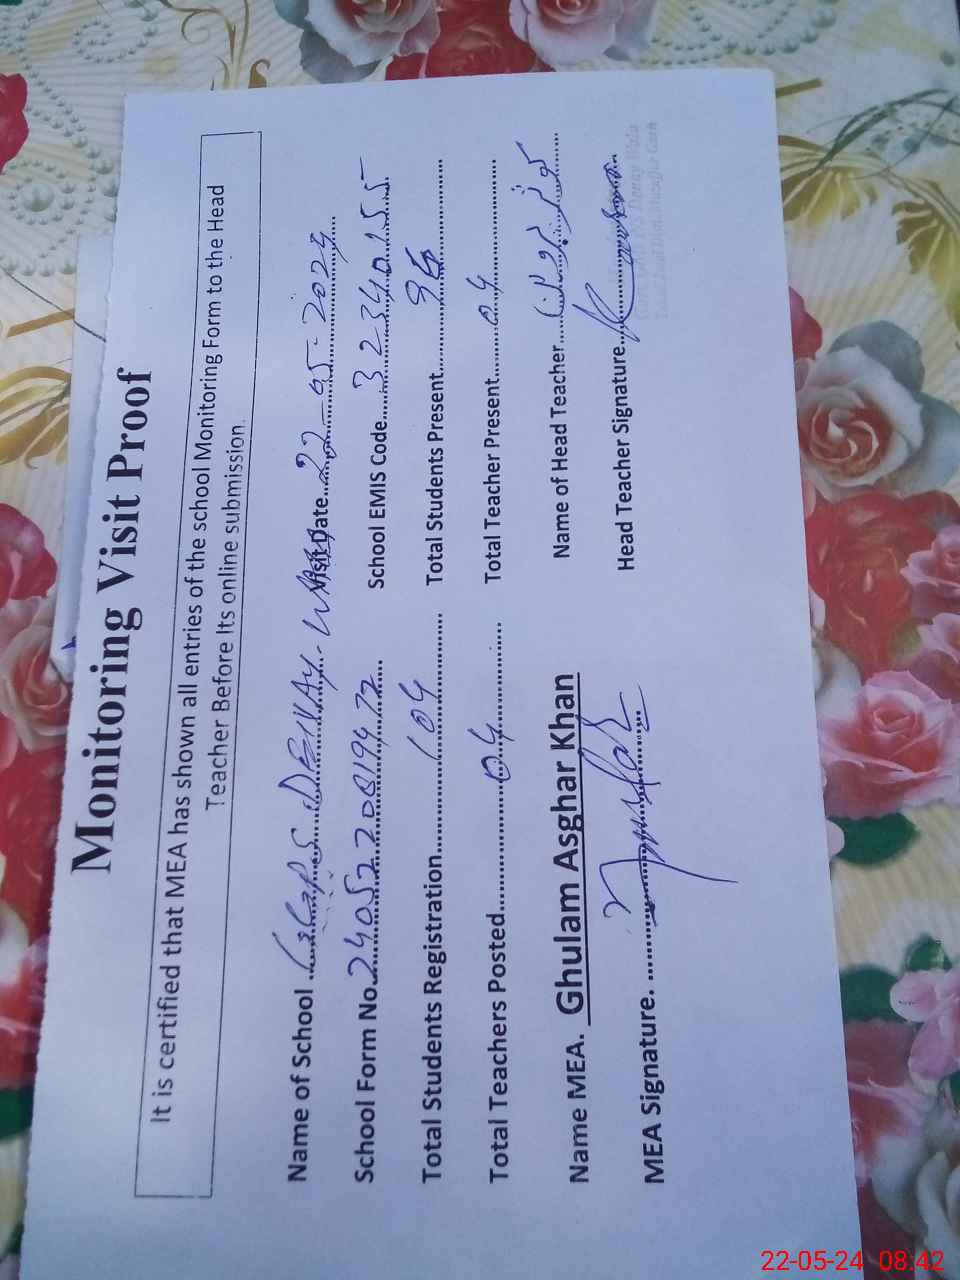 Monitoring Visit Proof
It is certified that MEA has shown all entries of the school Monitoring Form to the Head
Teacher Before Its online submission.
Name of School GGPS Visit Date 22-05-2024
School Form No. School EMIS Code 32340155
Total Students Registration 104 Total Students Present 96
Total Teachers Posted 04 Total Teacher Present 04
Name MEA. Ghulam Asghar Khan Name of Head Teacher
MEA Signature. Head Teacher Signature
22-05-24 08:42